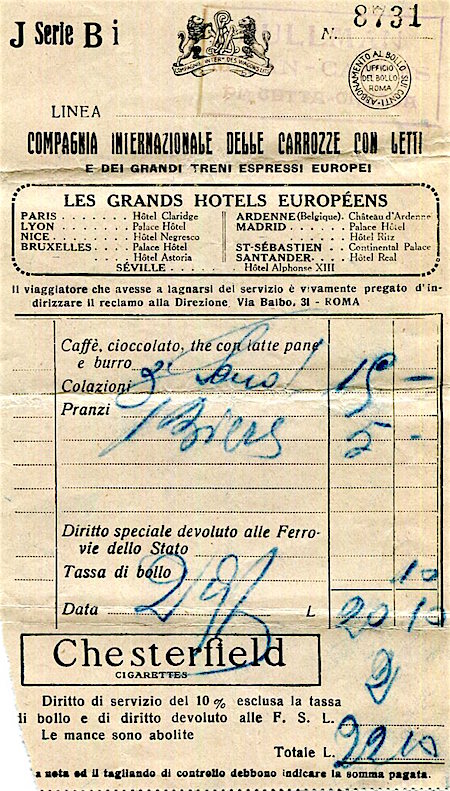 J Serie B i
N. 8731
COMPAGNIE INTERle DES WAGONS LITS
ABBONAMENTO AL BOLLO SUI CONTI
UFFICIO DEL BOLLO ROMA
LINEA
COMPAGNIA INTERNAZIONALE DELLE CARROZZE CON LETTI
E DEI GRANDI TRENI ESPRESSI EUROPEI
LES GRANDS HOTELS EUROPÉENS
PARIS . . . . . . . Hôtel Claridge
LYON . . . . . . . Palace Hôtel
NICE . . . . . . . Hôtel Negresco
BRUXELLES . . . . Palace Hôtel
Hôtel Astoria
ARDENNE (Belgique). Château d'Ardenne
MADRID . . . . . . Palace Hôtel
Hôtel Ritz
ST-SÉBASTIEN . . Continental Palace
SANTANDER . . . . Hôtel Real
SÉVILLE . . . . . . . . . Hôtel Alphonse XIII
Il viaggiatore che avesse a lagnarsi del servizio è vivamente pregato d'in-
dirizzare il reclamo alla Direzione. Via Balbo, 31 - ROMA
Caffè, cioccolato, the con latte pane
e burro
Colazioni 15 —
Pranzi
Biers 5 -
Diritto speciale devoluto alle Ferro-
vie dello Stato
Tassa di bollo 10
Data L 20 10
Chesterfield
CIGARETTES
2
Diritto di servizio del 10% esclusa la tassa
di bollo e di diritto devoluto alle F. S. L.
Le mance sono abolite
Totale L. 22 10
a nota ed il tagliando di controllo debbono indicare la somma pagata.